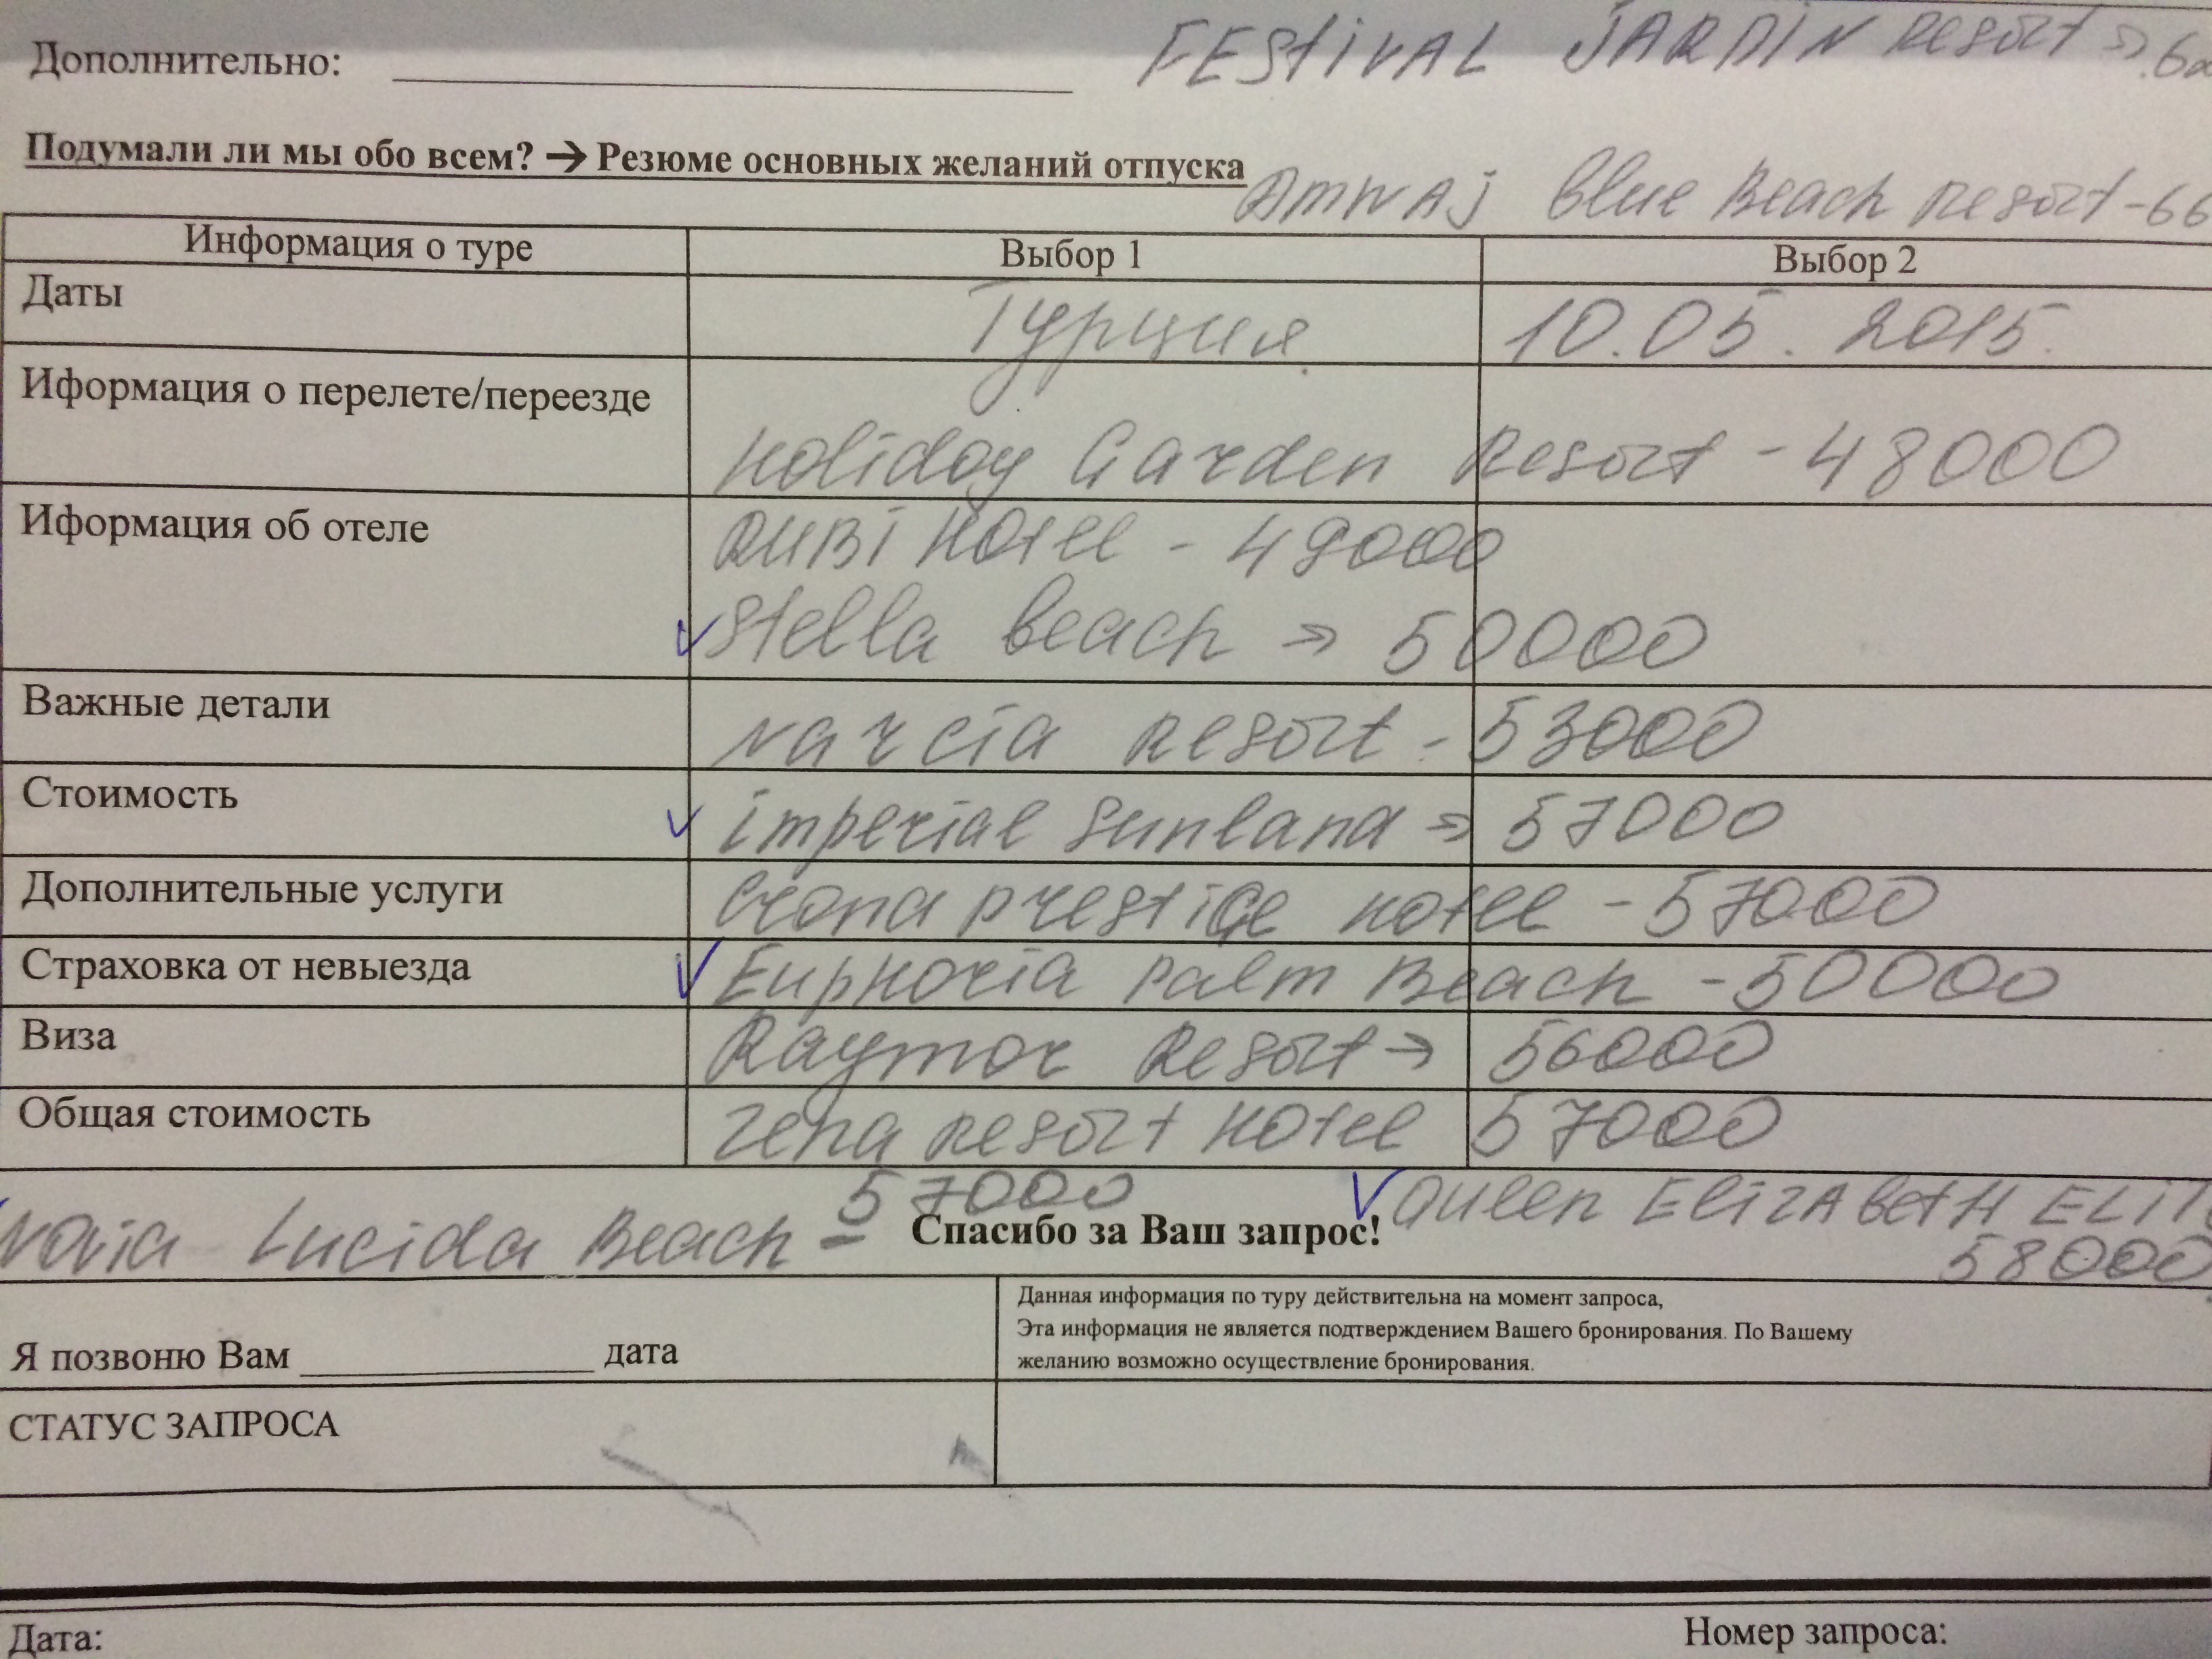 FESTIVAL JARDIN Resort =>
Дополнительно:
Подумали ли мы обо всем? → Резюме основных желаний отпуска
Amwaj Blue Beach Resort - 66
Информация о туре Выбор 1 Выбор 2
Даты Турция 10.05.2015.
Иформация о перелете/переезде
Holiday Garden Resort - 48000
Иформация об отеле RUBI Hotel - 49000
✓ Stella beach => 50000
Важные детали narcia Resort - 53000
Стоимость ✓ imperial Sunland => 57000
Дополнительные услуги prestige hotel - 57000
Страховка от невыезда ✓ Euphoria palm Beach - 50000
Виза Raymar Resort → 56000
Общая стоимость zena Resort Hotel 57000
Lucida Beach - 57000 ✓ Queen ELIZAbetH ELIT
58000
Спасибо за Ваш запрос!
Я позвоню Вам ____ дата
Данная информация по туру действительна на момент запроса,
Эта информация не является подтверждением Вашего бронирования. По Вашему
желанию возможно осуществление бронирования.
СТАТУС ЗАПРОСА
Дата: Номер запроса: